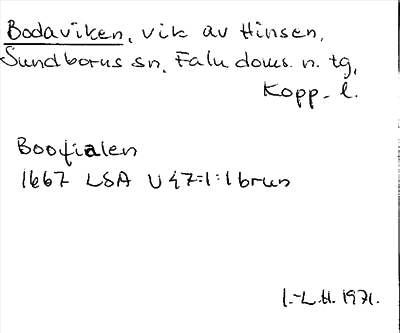 Bodaviken, vik av Hinsen,
Sundborns sn, Falu doms. n. tg,
Kopp. l.
Boofialen
1667 LSA U 47:1:1 brun
I.-L.H. 1971.